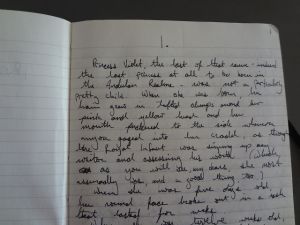 1
1.
Princess Violet, the last of that name - indeed
the last princess at all to be born in
the Realm - was not a particularly
pretty child. When she was born, her
hair grew in tufted clumps around her
pink and yellow head and her
mouth puckered to the side whenever
anyone peered into her cradle, as though
the royal infant was sizing up any
visitor and assessing his worth (which
as you will see, my dears, she most
assuredly was, and a good thing too.)
When she was five days old,
her normal face broke out in a rash
that lasted for weeks.
When she was twelve weeks old,